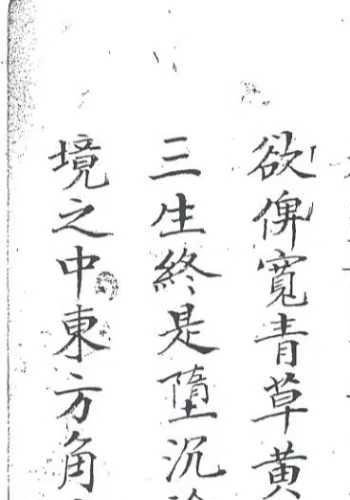 欲俾寬青草黄
三生終是墮沉
境之中東方角